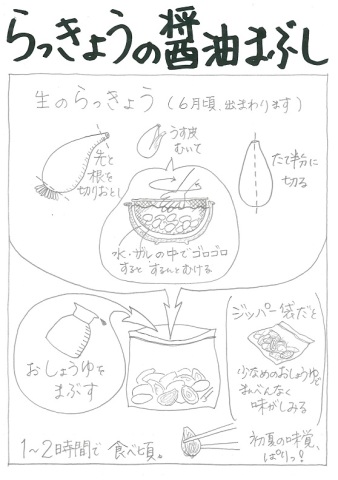 らっきょうの醤油まぶし
生のらっきょう(6月頃、出まわります)
先と
根を
切りおとし
うす皮
むいて
たて半分に
切る
水・ザルの中でゴロゴロ
すると するんとむける
おしょうゆを
まぶす
ジッパー袋だと
少なめのおしょうゆで
まんべんなく
味がしみる
1〜2時間で 食べ頃。
初夏の味覚、
ぱりっ!